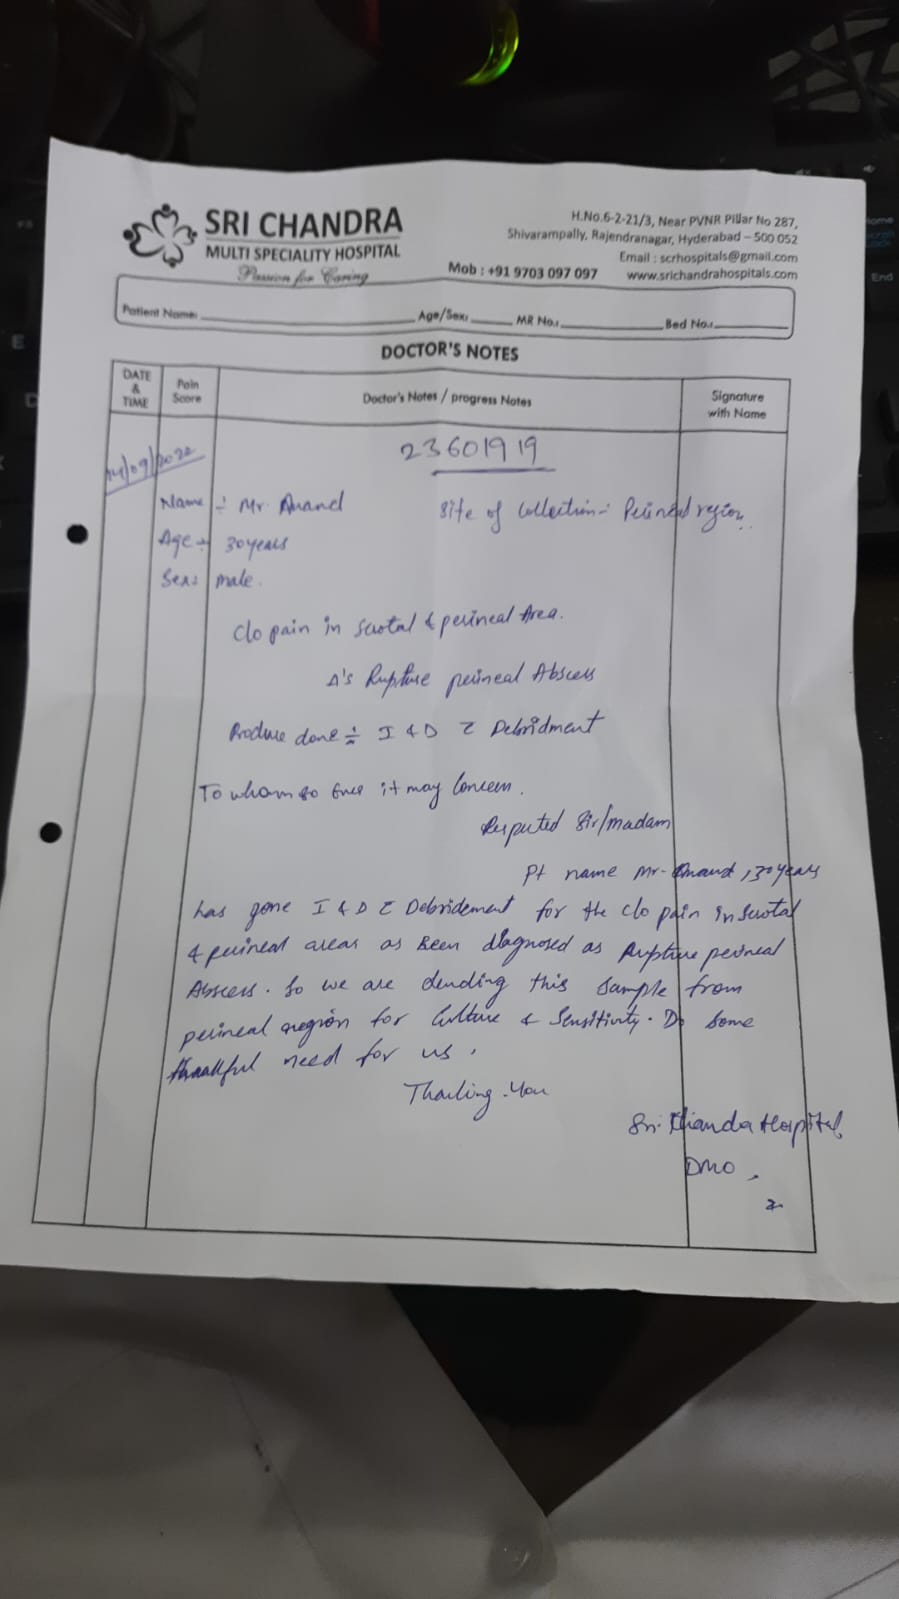 SRI CHANDRA
MULTI SPECIALITY HOSPITAL
Passion for Caring
H.No.6-2-21/3, Near PVNR Pillar No 287,
Shivarampally, Rajendranagar, Hyderabad – 500 052
Email : scrhospitals@gmail.com
Mob : +91 9703 097 097 www.srichandrahospitals.com
Patient Name: Age/Sex: MR No.: Bed No.:
DOCTOR'S NOTES
DATE & TIME
Pain Score
Doctor's Notes / progress Notes
Signature with Name
23601919
14/09/2022
Name ÷ Mr Anand Site of Collection:- Perineal region
Age ÷ 30 years
Sex: male.
C/o pain in Scrotal & perineal Area.
Δ's Rupture perineal Abscess
Produre done ÷ I & D c Debridment
To whom so ever it may Concern.
Respected Sir/madam
Pt name Mr. Anand, 30 years
has gone I & D c Debridement for the c/o pain in Scrotal
& perineal areas as Been diagnosed as Rupture perineal
Abscess. So we are dending this Sample from
perineal region for Culture & Sensitivity. Do Some
thankful need for us.
Thanking You
Sri Chanda Hospital,
DMO,
Home
End
E